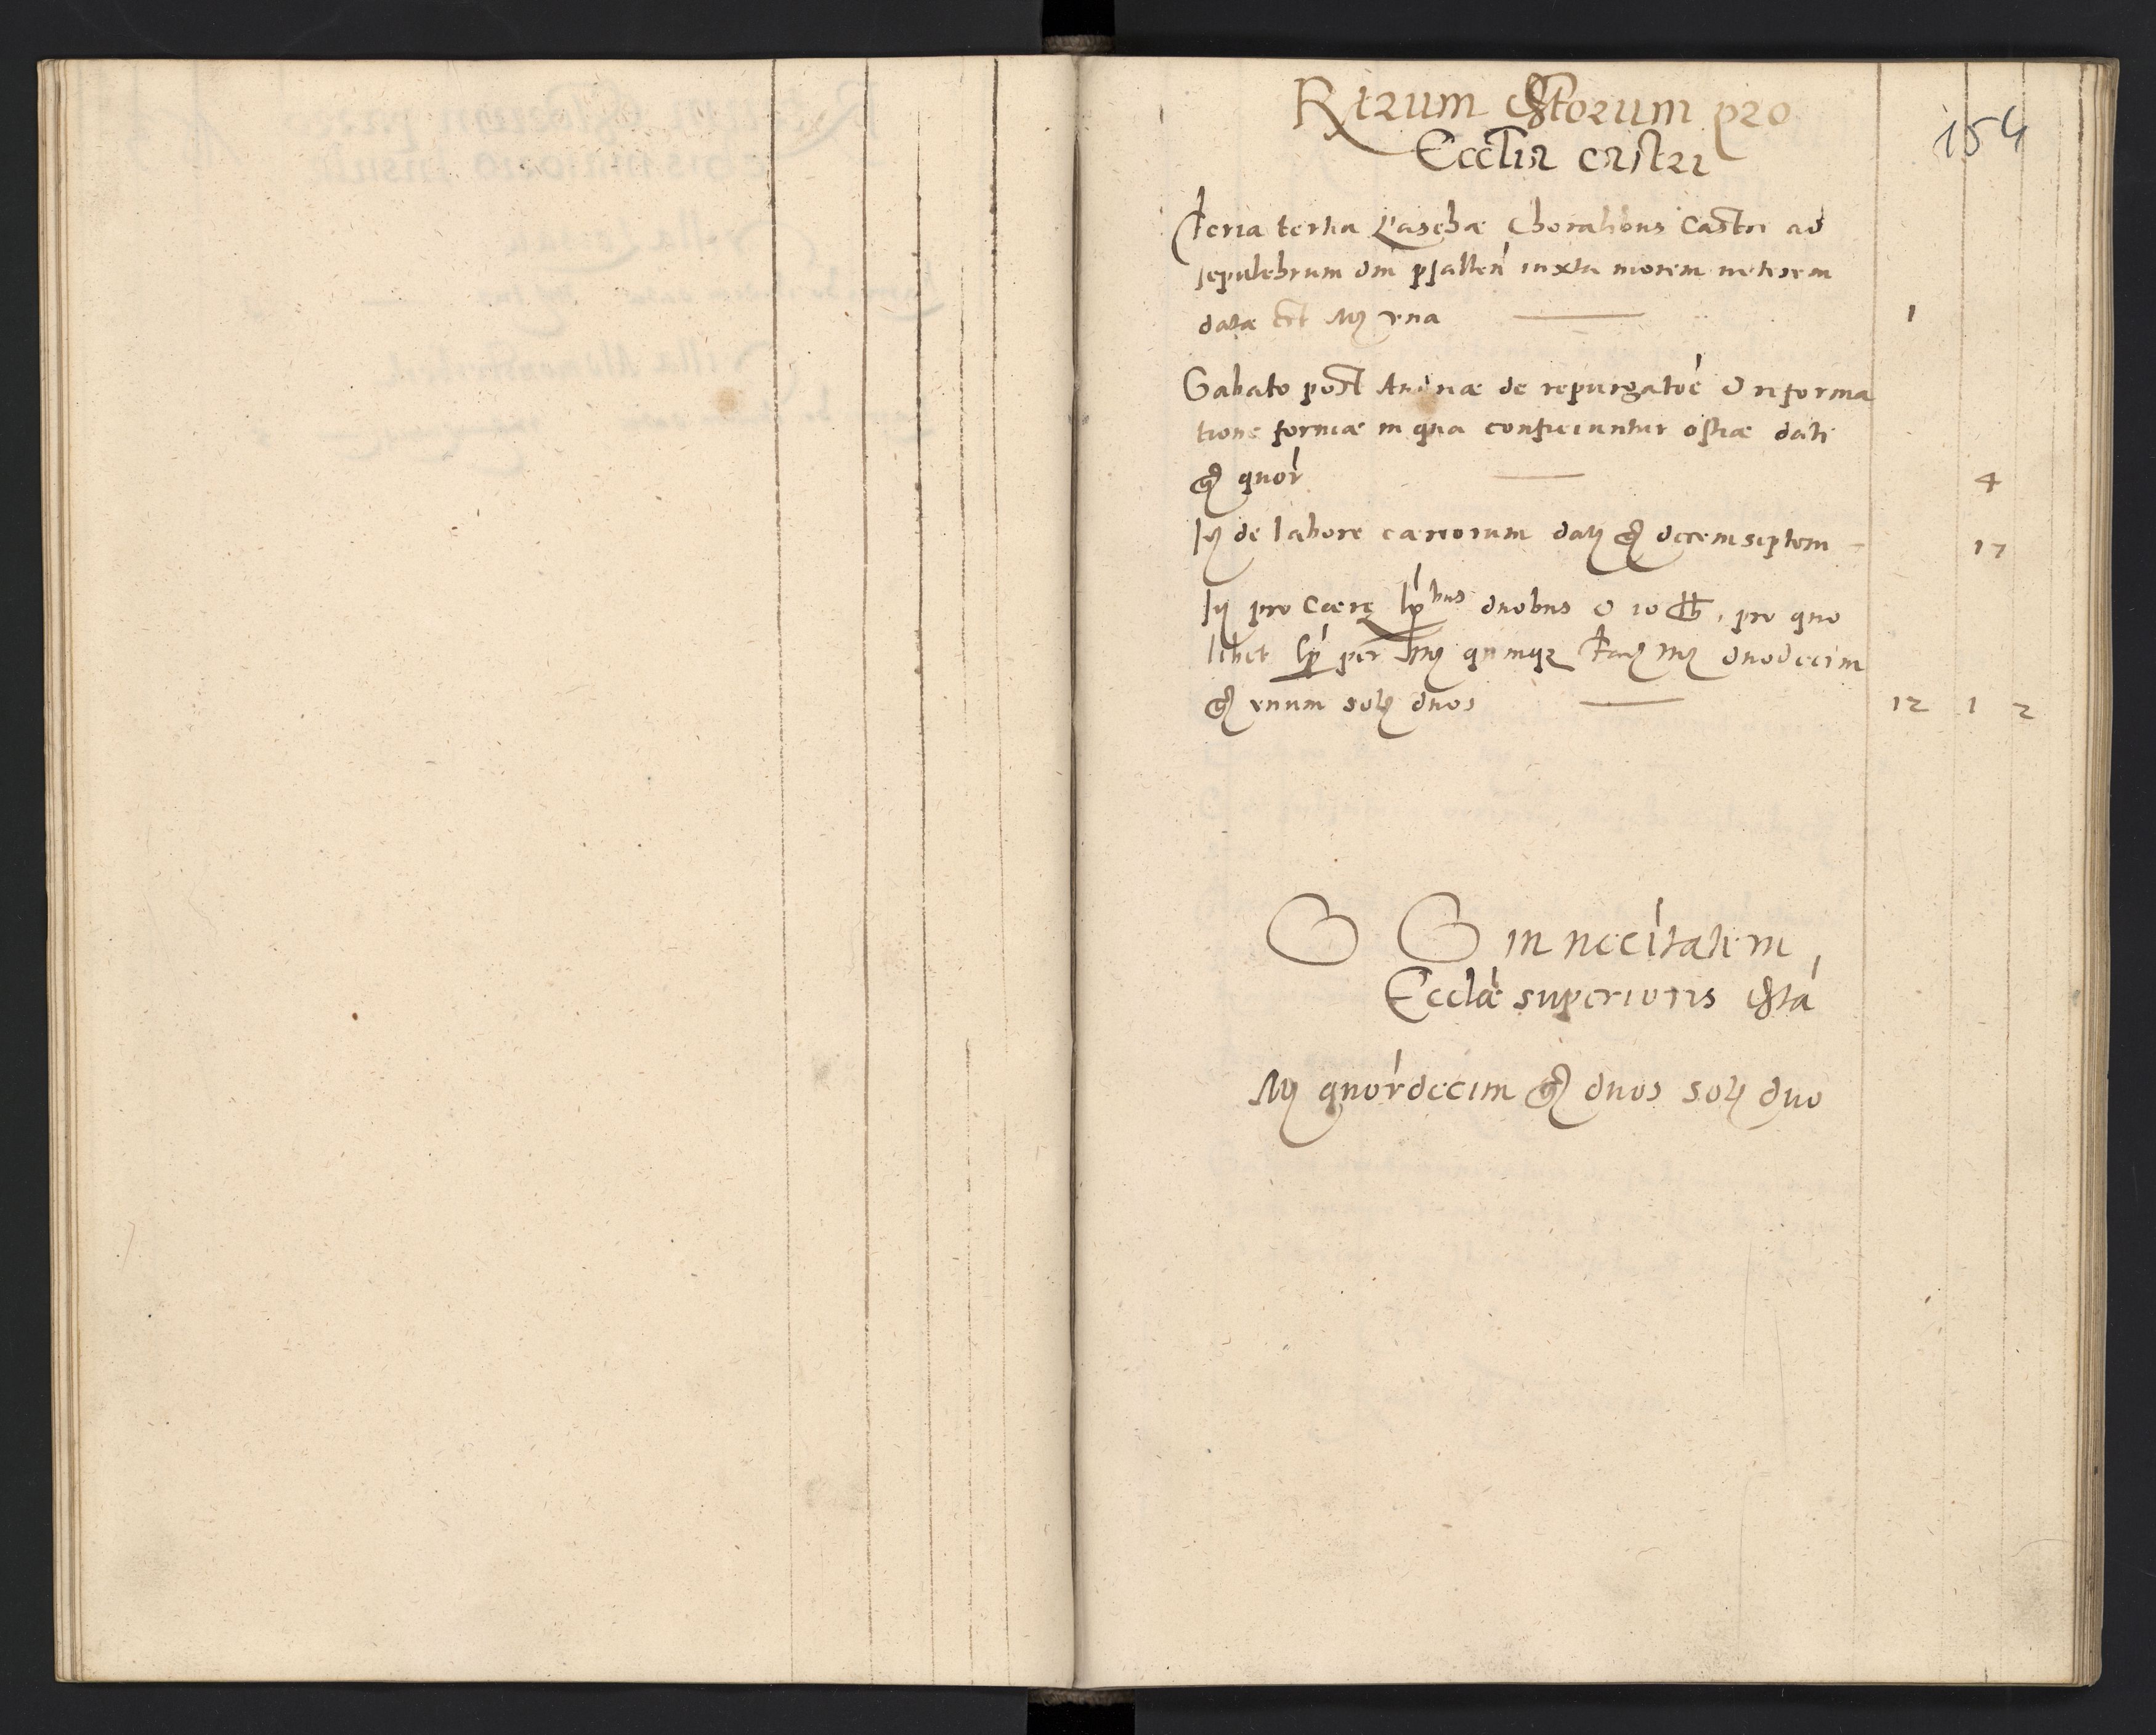 Rerum Exstorum pro
Ecclia castri
154
Feria tertia Paschæ Choralibus Castri ad
sepulchrum dni psallen iuxta morem veterem
data est Mr vna 1
Sabato post de repurgatoe & reforma
tione formæ in qua conficiuntur ostiæ dati
gr quor 4
It de labore cereorum dati gr decemseptem 17
It pro Cera lp bus duobus & 10 lb, pro quo
libet lp per Mr quinque fac Mr duodecim
gr vnum sol duos 12 1 2
in necitatem
Ecclæ superioris exta
Mr quordecim gr duos sol duo